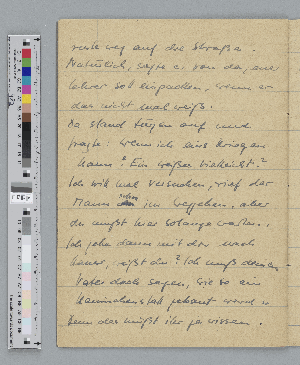 weg auf die Straße.
Natürlich, sagte er, von da, euer
Lehrer soll einpacken, wenn er
das nicht mal weiß.
Da stand Jürgen auf und
fragte: wenn ich eins kriegen
kann? Ein weißes vielleicht?
Ich will mal versuchen, rief der
Mann schon im Weggehen, aber
du mußt hier solange warten.
Ich gehe dann mit dir nach
Hause, weißt du? Ich muß deinem
Vater doch sagen, wie so ein
Kaninchenstall gebaut wird.
Denn das müßt ihr ja wissen.